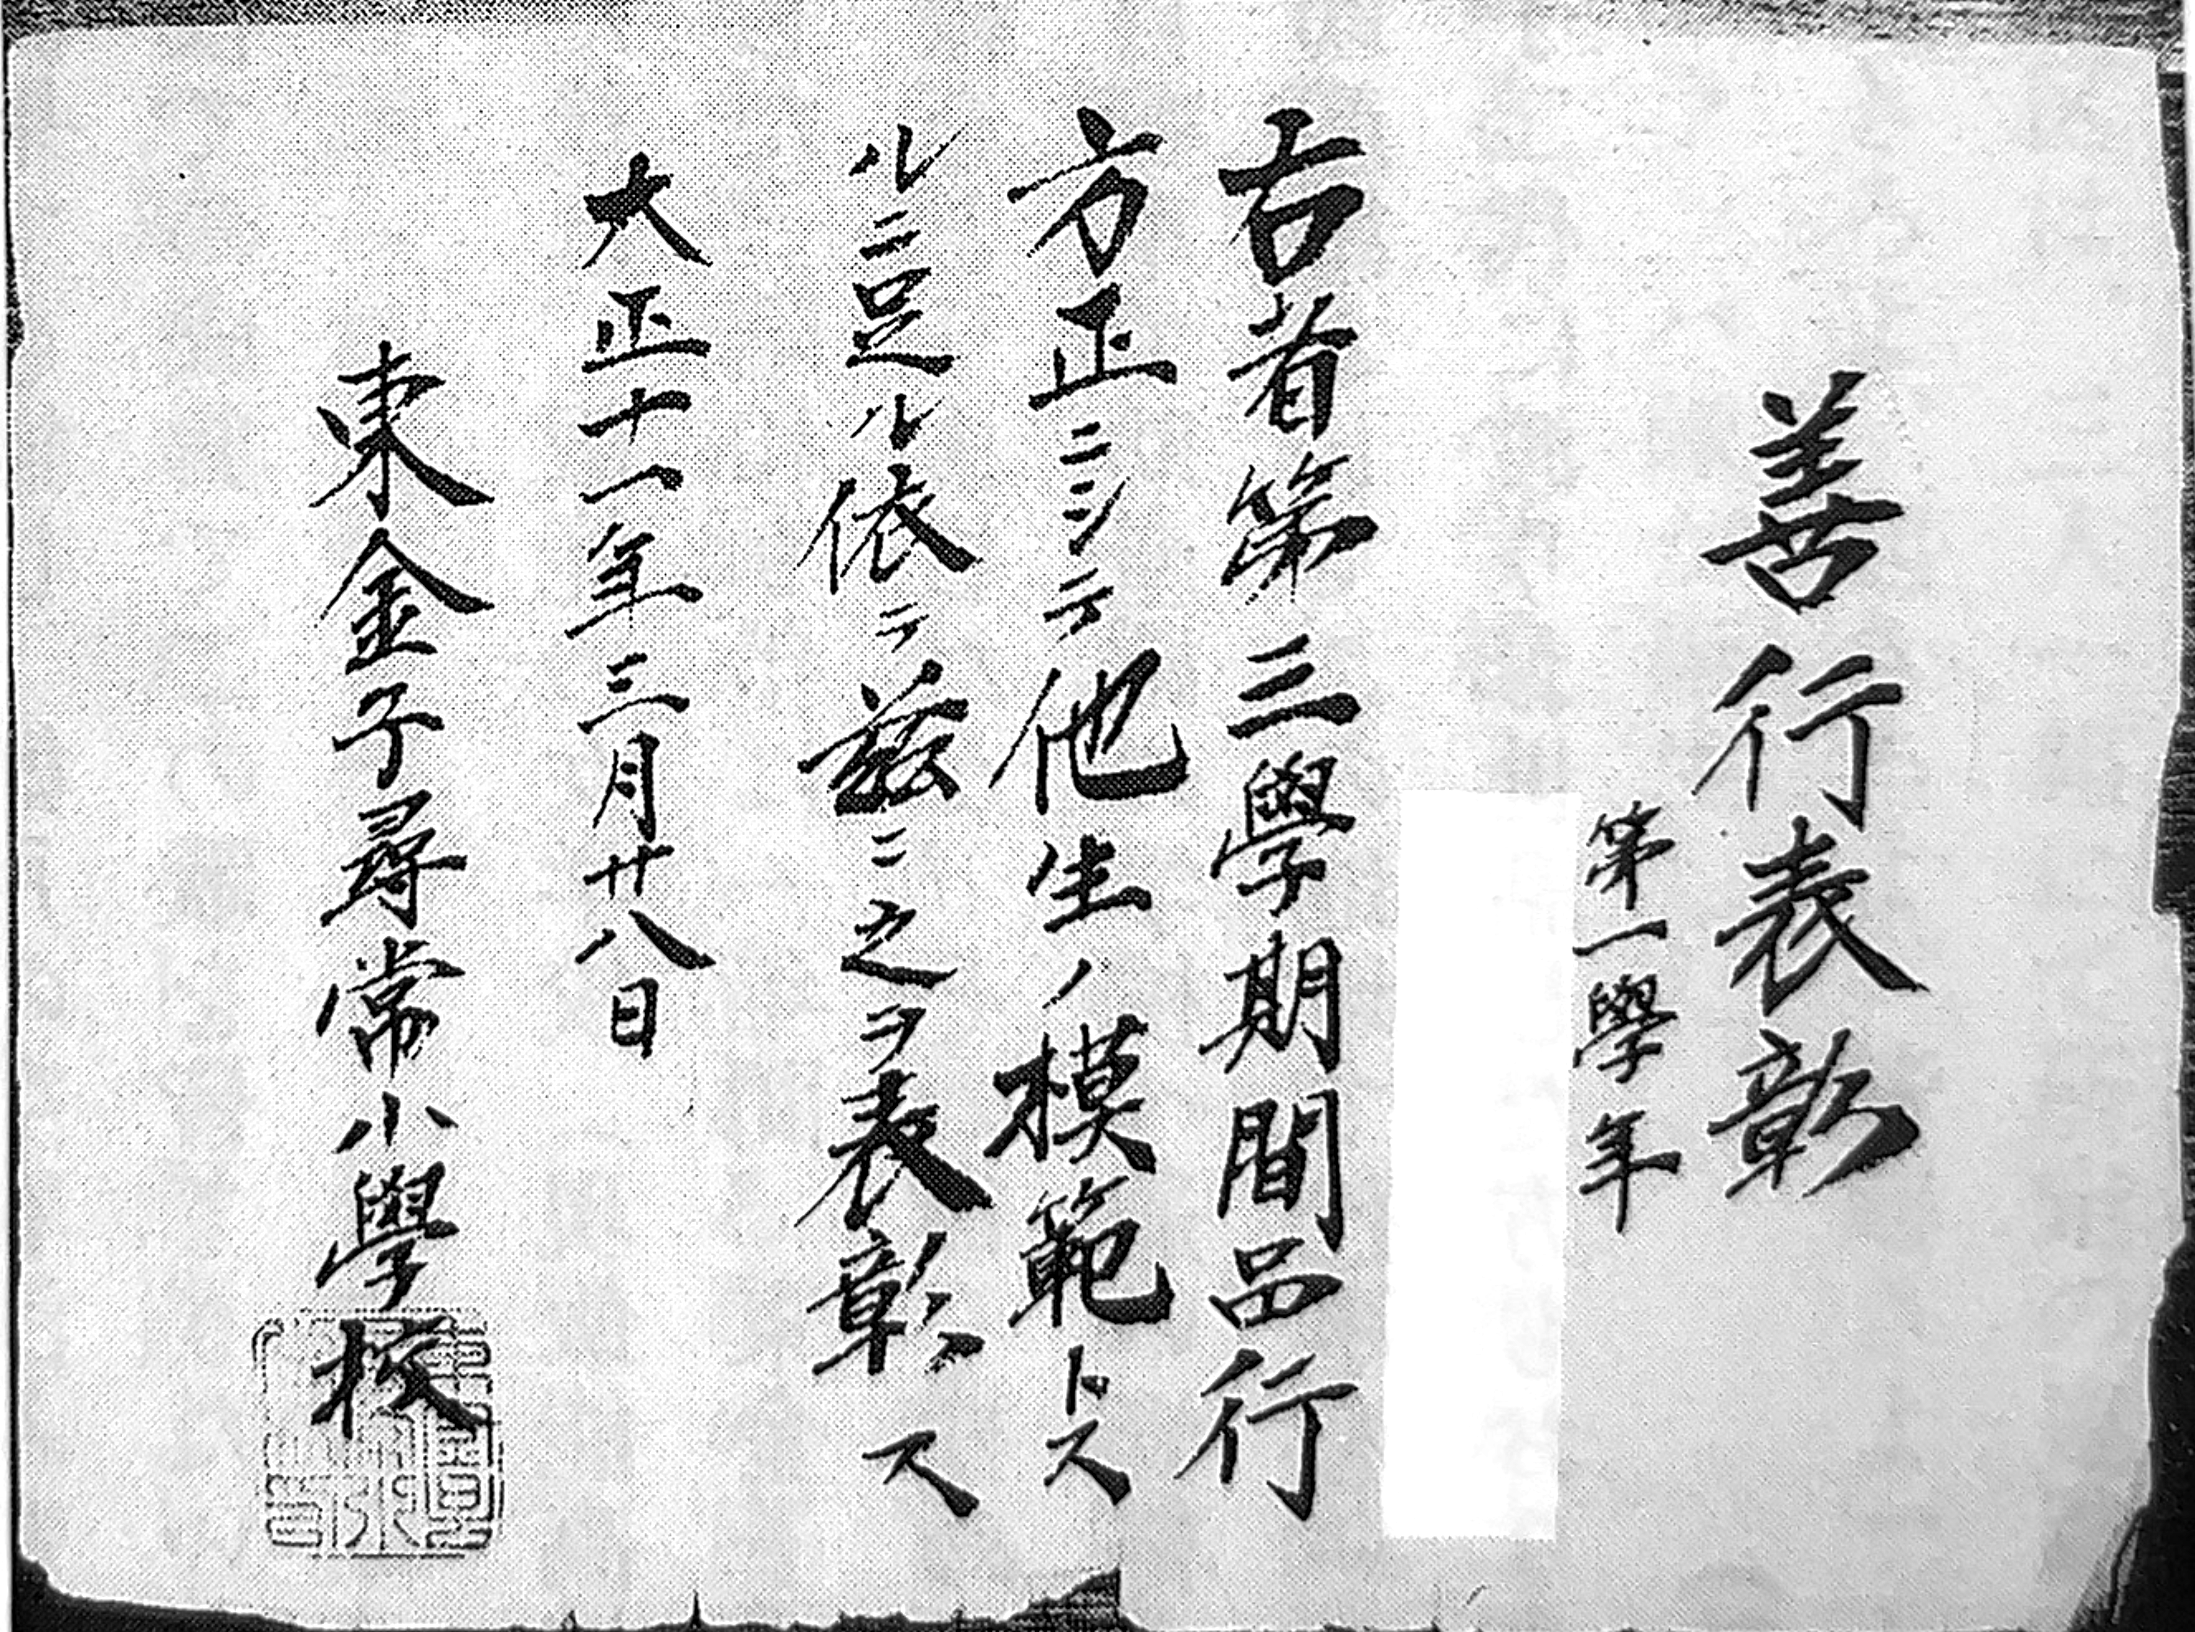 善行表彰
第一學年
右者第三學期間品行
方正ニシテ他生ノ模範トス
ルニ足ル依テ茲ニ之ヲ表彰ス
大正十一年三月廿八日
東金子尋常小學校